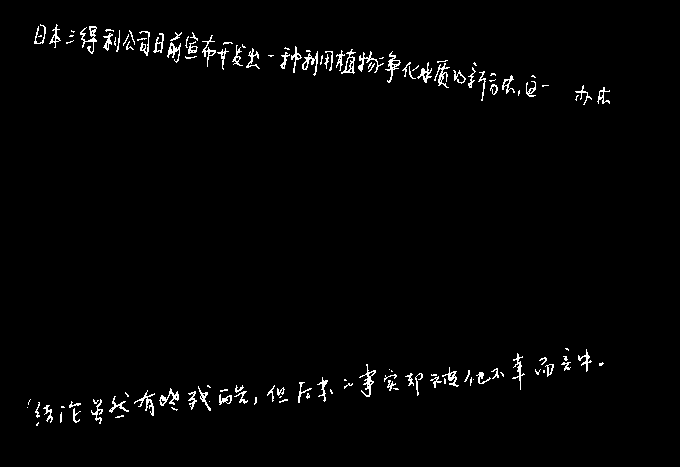 日本三得利公司日前宣布开发出一种利用植物净化水质的新方法,这一 办法
结论虽然有些残酷,但后来的事实却被他不幸而言中。